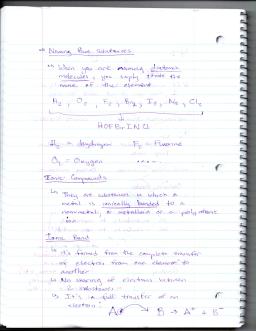 → Naming Pure Substances
↳ When you are naming diatomic
molecules, you simply state the
name of the element
H₂, O₂, F₂, Br₂, I₂, N₂, Cl₂
HOFBrINCl
H₂ = Hydrogen F₂ = Fluorine
O₂ = Oxygen .....
Ionic Compounds
↳ They are substances in which a
metal is ionically bonded to a
nonmetal, a metalloid or a polyatomic
ion
Ionic Bond
↳ It's formed from the complete transfer
of electron from one element to
another
↳ No sharing of electrons between
2 substances
↳ It's a full transfer of an
electron
A B → A⁺ + B⁻